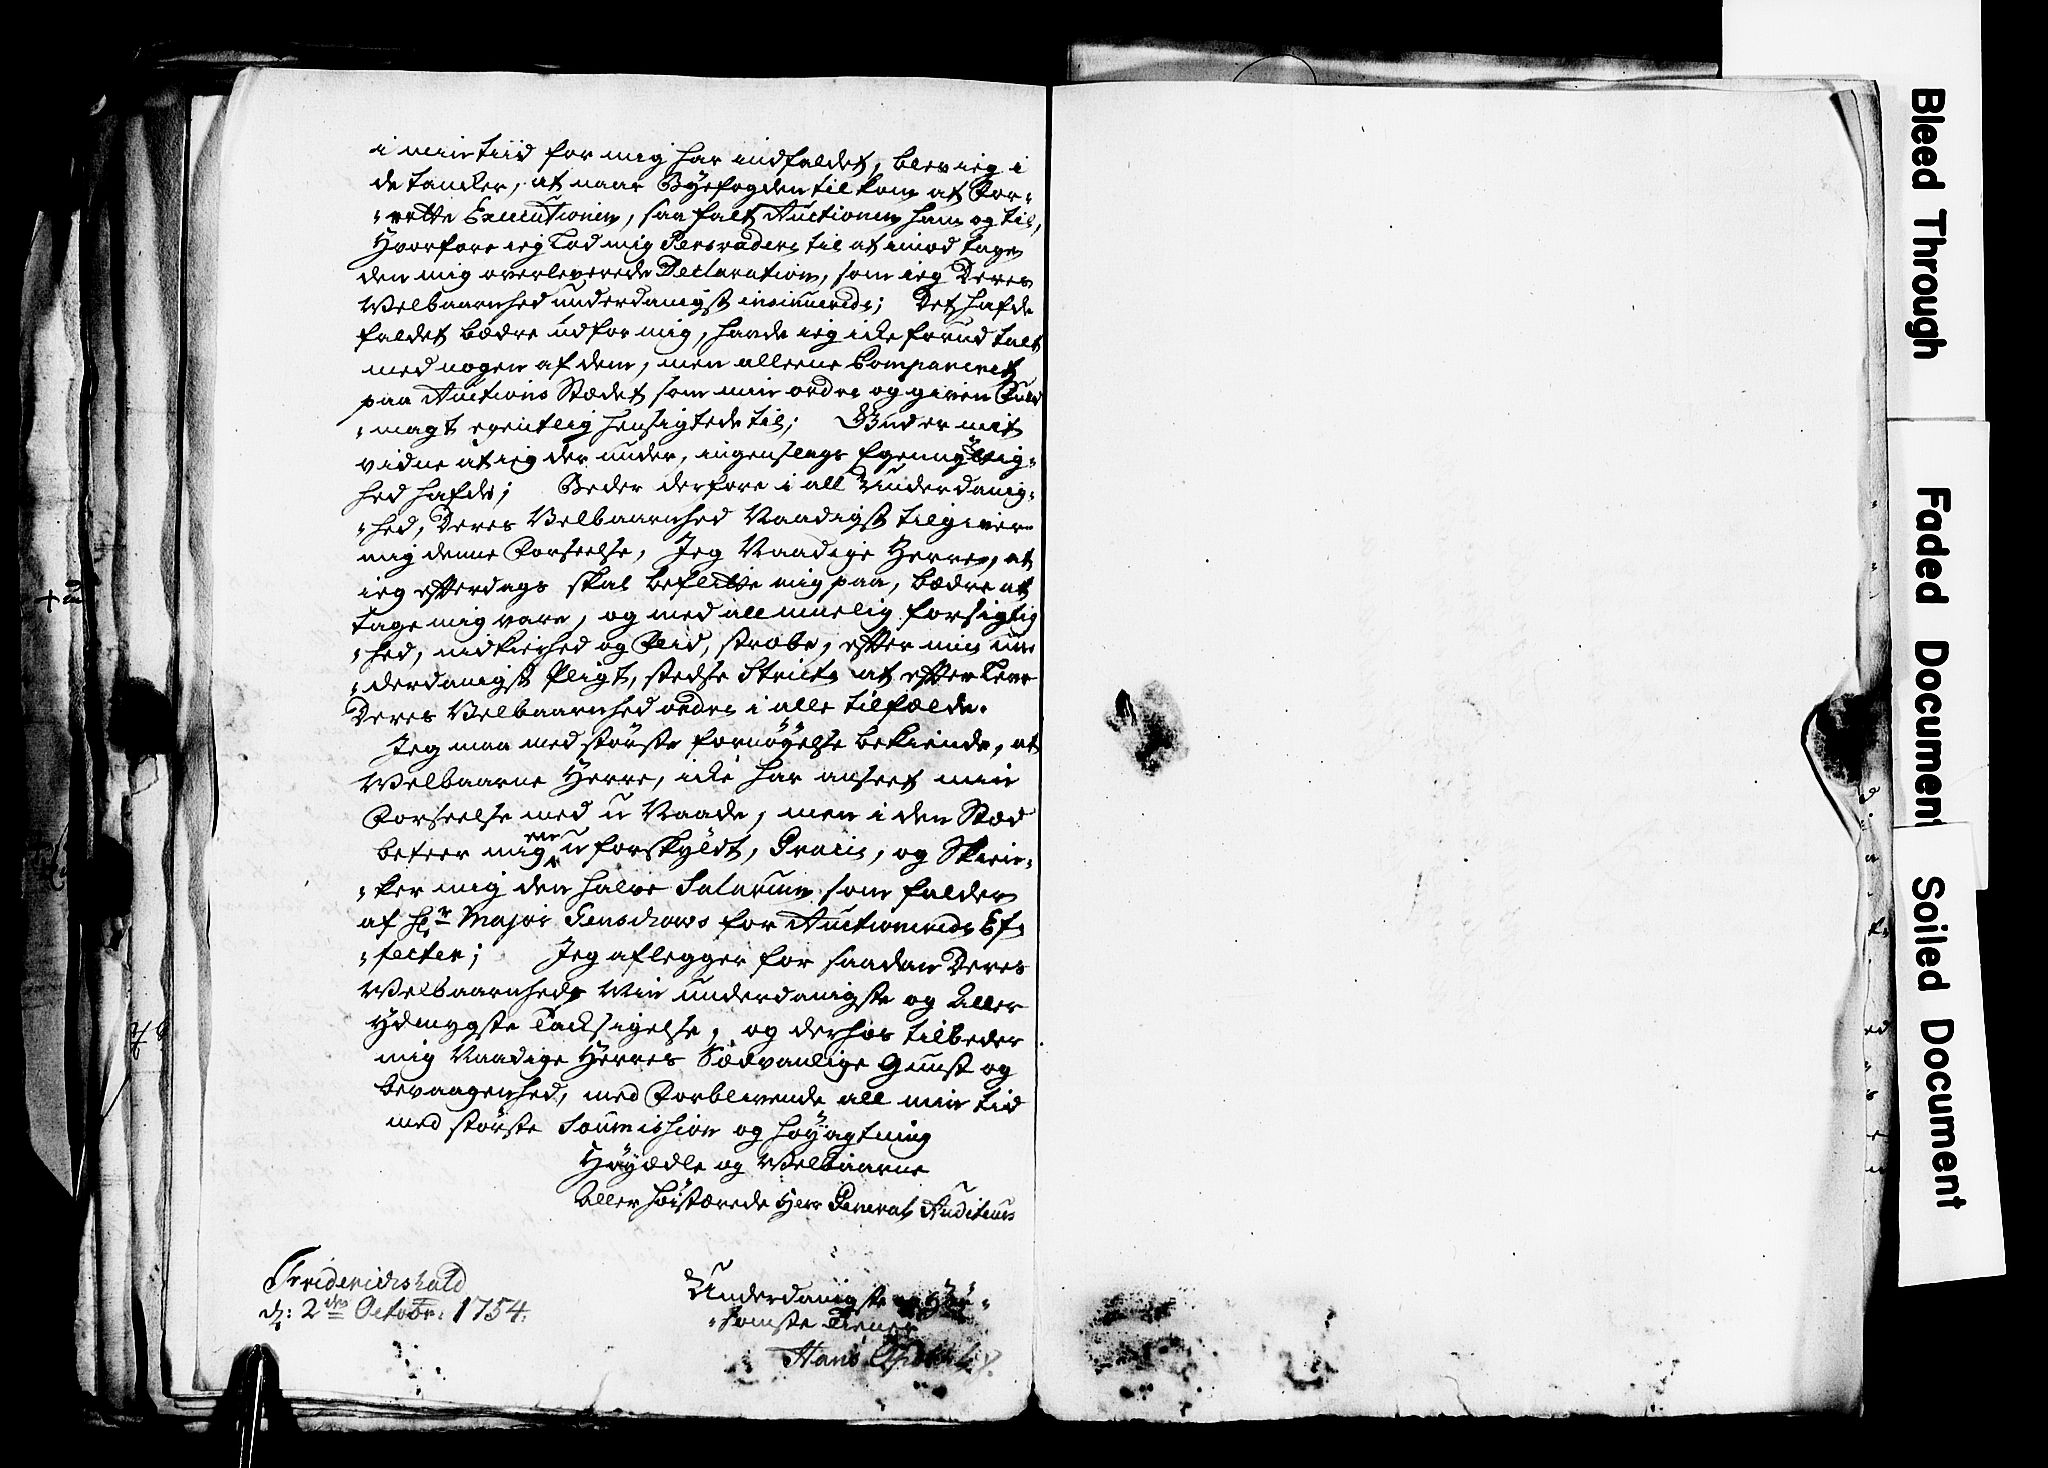 i min tiid for mig har indfaldet, blev ieg i
de tancker, at naar Byefogden tilkom at For-
-rette Executionen, saa falt Auctionen ham og til,
Hvorfore ieg Lod mig Persvadere til at imod tage
den mig overleverede Declaration, som ieg Deres
Velbaarnhed underdanigst insinuerede; Det hafde
faldet bædre ud for mig, havde ieg icke forud talt
med nogen af dem, men alleene Compareret
paa Auctions Stædet som min ordre og given Fuld
-magt egentlig hensigtede til; Gud er mit
vidne at ieg der under, ingenslags Egennyttig-
hed hafde; Beder derfore i all Underdanig-
-hed, Deres Velbaarnhed Naadigst tilgiver
mig denne Forseelse, Jeg Naadige Herre, at
ieg efterdags skal beflitte mig paa, bædre at
tage mig vare, og med all muelig forsigtig
-hed, nidkierhed og Flid, stræbe, efter min un
-derdanigst Pligt, stedse Stricte at efter Leve
Deres Velbaarnhed ordre i alle tilfælde.
Jeg maa med største fornøyelse bekiende, at
Velbaarne Herre, icke har anseet min
Forseelse med u Naade, men i den Stæd
beteer mig een u forskyldt, Gracie, og Skien-
-ker mig den halve Salarium som falder
af Hr Major Genschows for Auctionerede Ef-
-fecter; Jeg aflegger for saadan Deres
Velbaarnheds Min underdanigste og Aller
ydmygste Tacksigelse, og derhos tilbeder
mig Naadige Herres Sædvanlige Gunst og
bevaagenhed, med Forblivende all min tid
med største Soumission og høyagtning
Høyædle og Velbaarne
Aller høistærede Herr General Auditeur
Friderichshald
d: 2den Octobr: 1754.
Underdanigste og Hør-
-somste Tiener
Hans
Bleed Through
Faded Document
Soiled Document